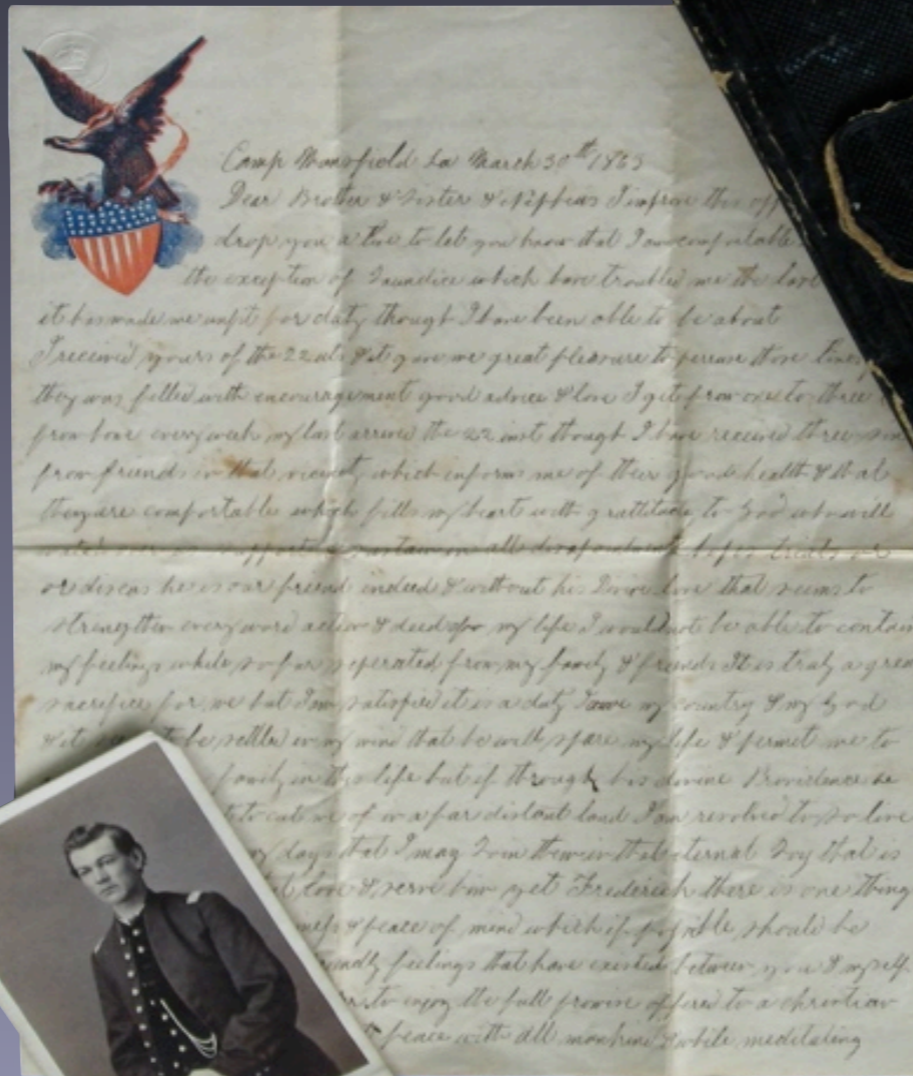 Camp Mansfield La March 30th 1863
Dear Brother & Sister & Nepheas I improve this opp
drop you a line to let you know that I am comfortable
the exception of Jaundice which have troubled me the last
it has made me unfit for duty though I have been able to be about
I received yours of the 22 ult & it gave me great pleasure to peruse those lines
they was filled with encouragement good advice & love I get from one to three
from home every week my last arrived the 22 inst though I have received three
from friends in that vicinity which informs me of their good health & that
they are comfortable which fills my heart with grattitude to God who will
all hopes trials or
or diseas he is our friend indeed & without his Divine love that seems to
strengthen every word action & deed of my life I would not be able to contain
my feelings while so far seperated from my family & friends It is truly a grea
sacrifice for me but I am satisfied it is a duty I owe my country & my God
& it to be settled in my mind that he will spare my life & permet me to
family in this life but if through his divine Providence he
to cut me of in a far distant land I am resolved to so live
my days that I may Join them in that eternal Joy that is
love & serve him yet Frederick there is one thing
ness & peace of mind which if possible should be
feelings that have existed between you & myself
to enjoy the full promise offered to a christian
peace with all mankind & while meditating